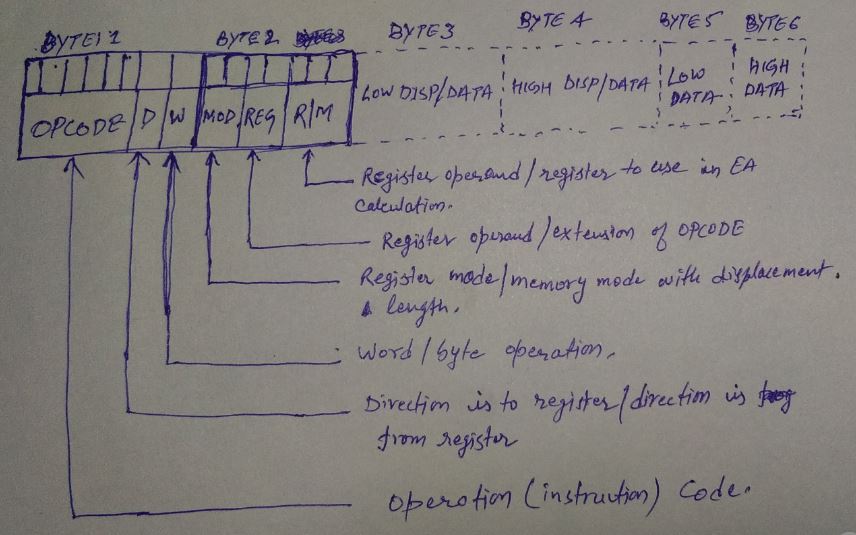 BYTE1 1 BYTE2 BYTE3 BYTE 4 BYTE5 BYTE6
OPCODE D W MOD REG R/M LOW DISP/DATA HIGH DISP/DATA LOW DATA HIGH DATA
Register operand/register to use in EA
calculation.
Register operand/extension of OPCODE
Register mode/memory mode with displacement.
length.
Word/byte operation.
Direction is to register/direction is
from register
Operation (instruction) Code.